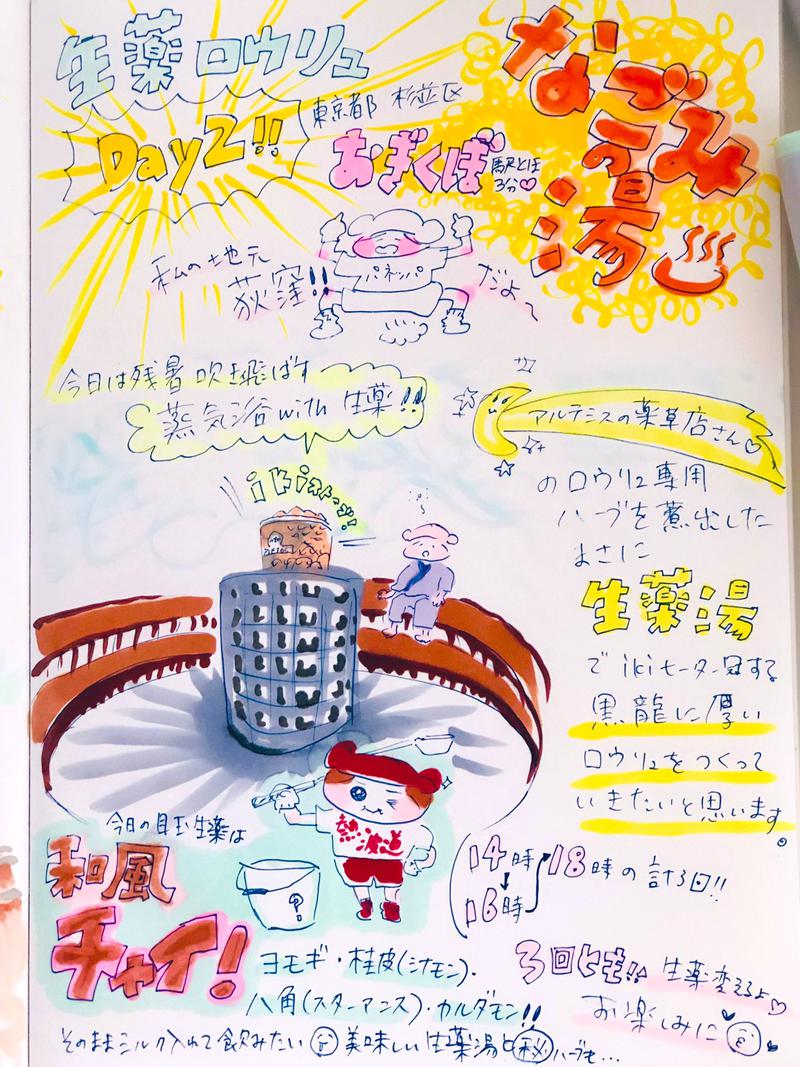 生薬ロウリュ
Day2!!
東京都 杉並区
おぎくぼ
駅とほ
3分♡
なごみ
の
湯♨
私の地元
荻窪!!
だよ〜
パネッパ
今日は残暑吹き飛ばす
蒸気浴with生薬!!
アルテミスの薬草店さん♡
のロウリュ専用
ハーブを煮出した
まさに
生薬湯
でikiヒーター冠する
黒龍に厚い
ロウリュをつくって
いきたいと思います。
ikiストーブ!
熱波道
?
今日の目玉生薬は
和風
チャイ!
14時
↓
16時
18時の計3回!!
ヨモギ・桂皮(シナモン)・
八角(スターアニス)・カルダモン!!
3回とも!! 生薬変えるよ♡
お楽しみに
そのままミルク入れて飲みたい 美味しい生薬湯と㊙ハーブも…